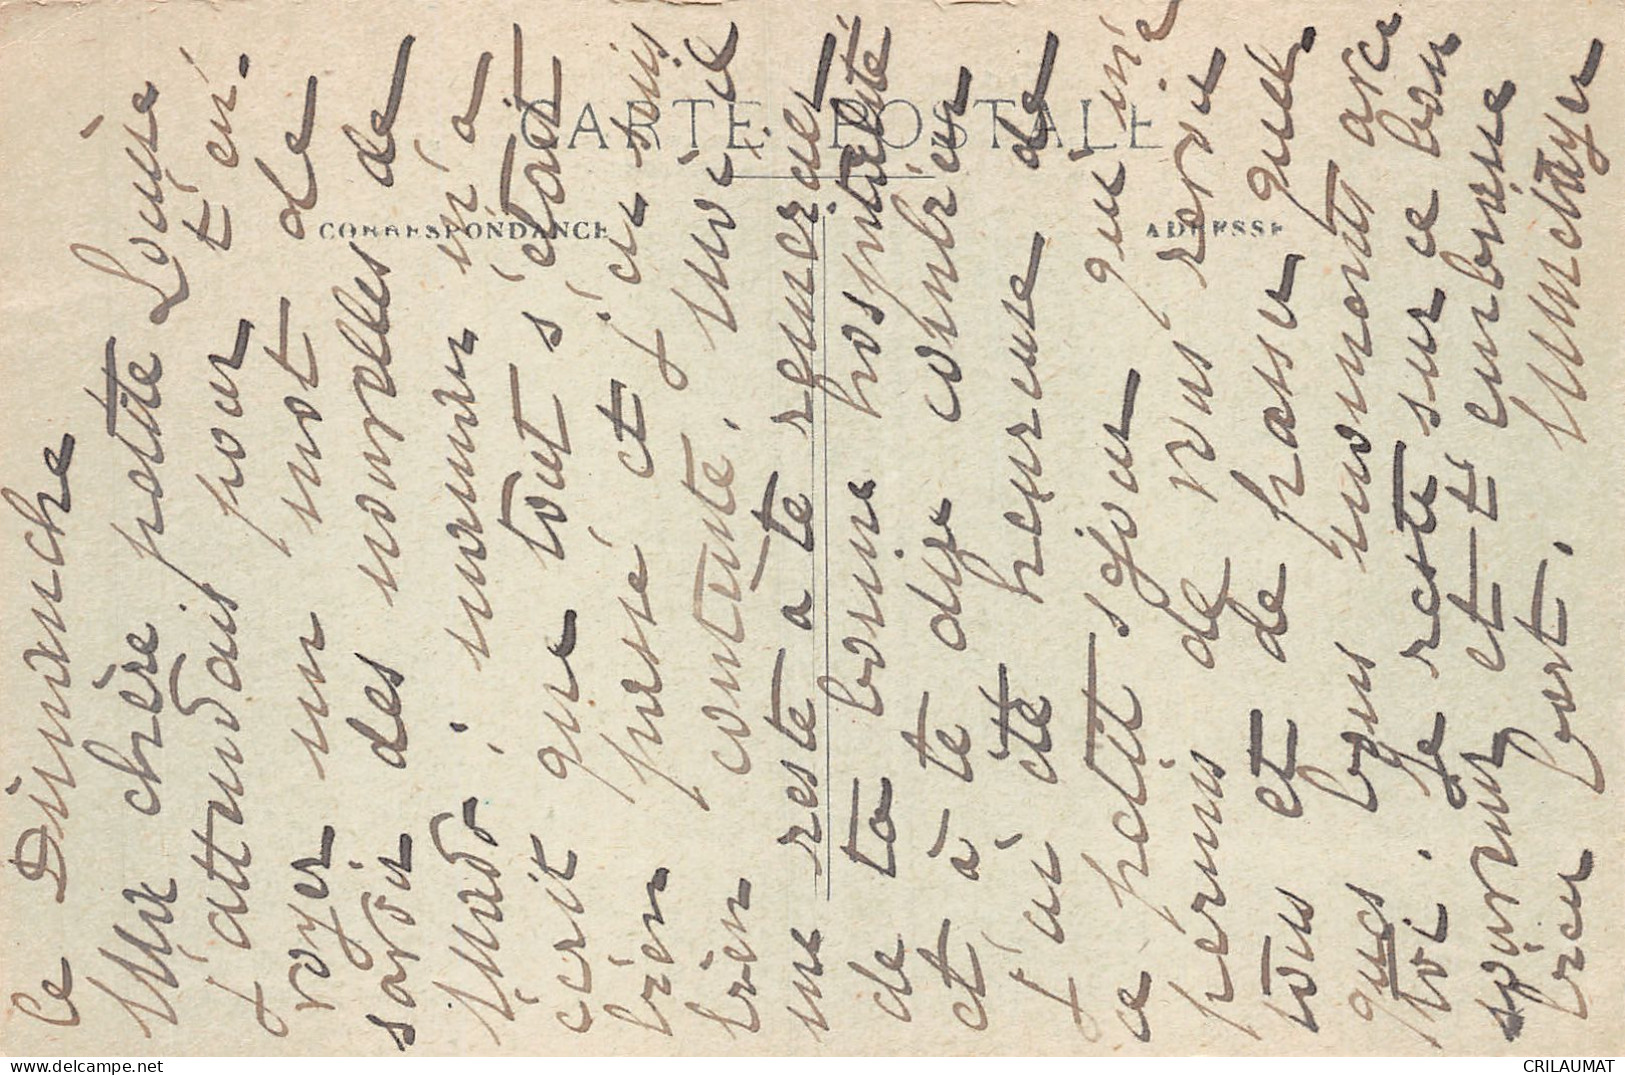 CARTE POSTALE
CORRESPONDANCE
ADRESSE
Ce Dimanche
Ma chère petite Louise
J'attendais pour t'en-
voyer un mot de
savoir des nouvelles de
Mado ; maman m'a
écrit que tout s'était
bien passé et j'en suis
bien contente. Moi il
me reste à te remercier
de ta bonne hospitalité
et à te dire combien
j'ai été heureuse de
ce petit séjour qui m'a
permis de vous revoir
tous et de passer quel-
ques bons moments avec
toi. Je reste sur ce bon
souvenir et t'embrasse
bien fort.
CRILAUMAT